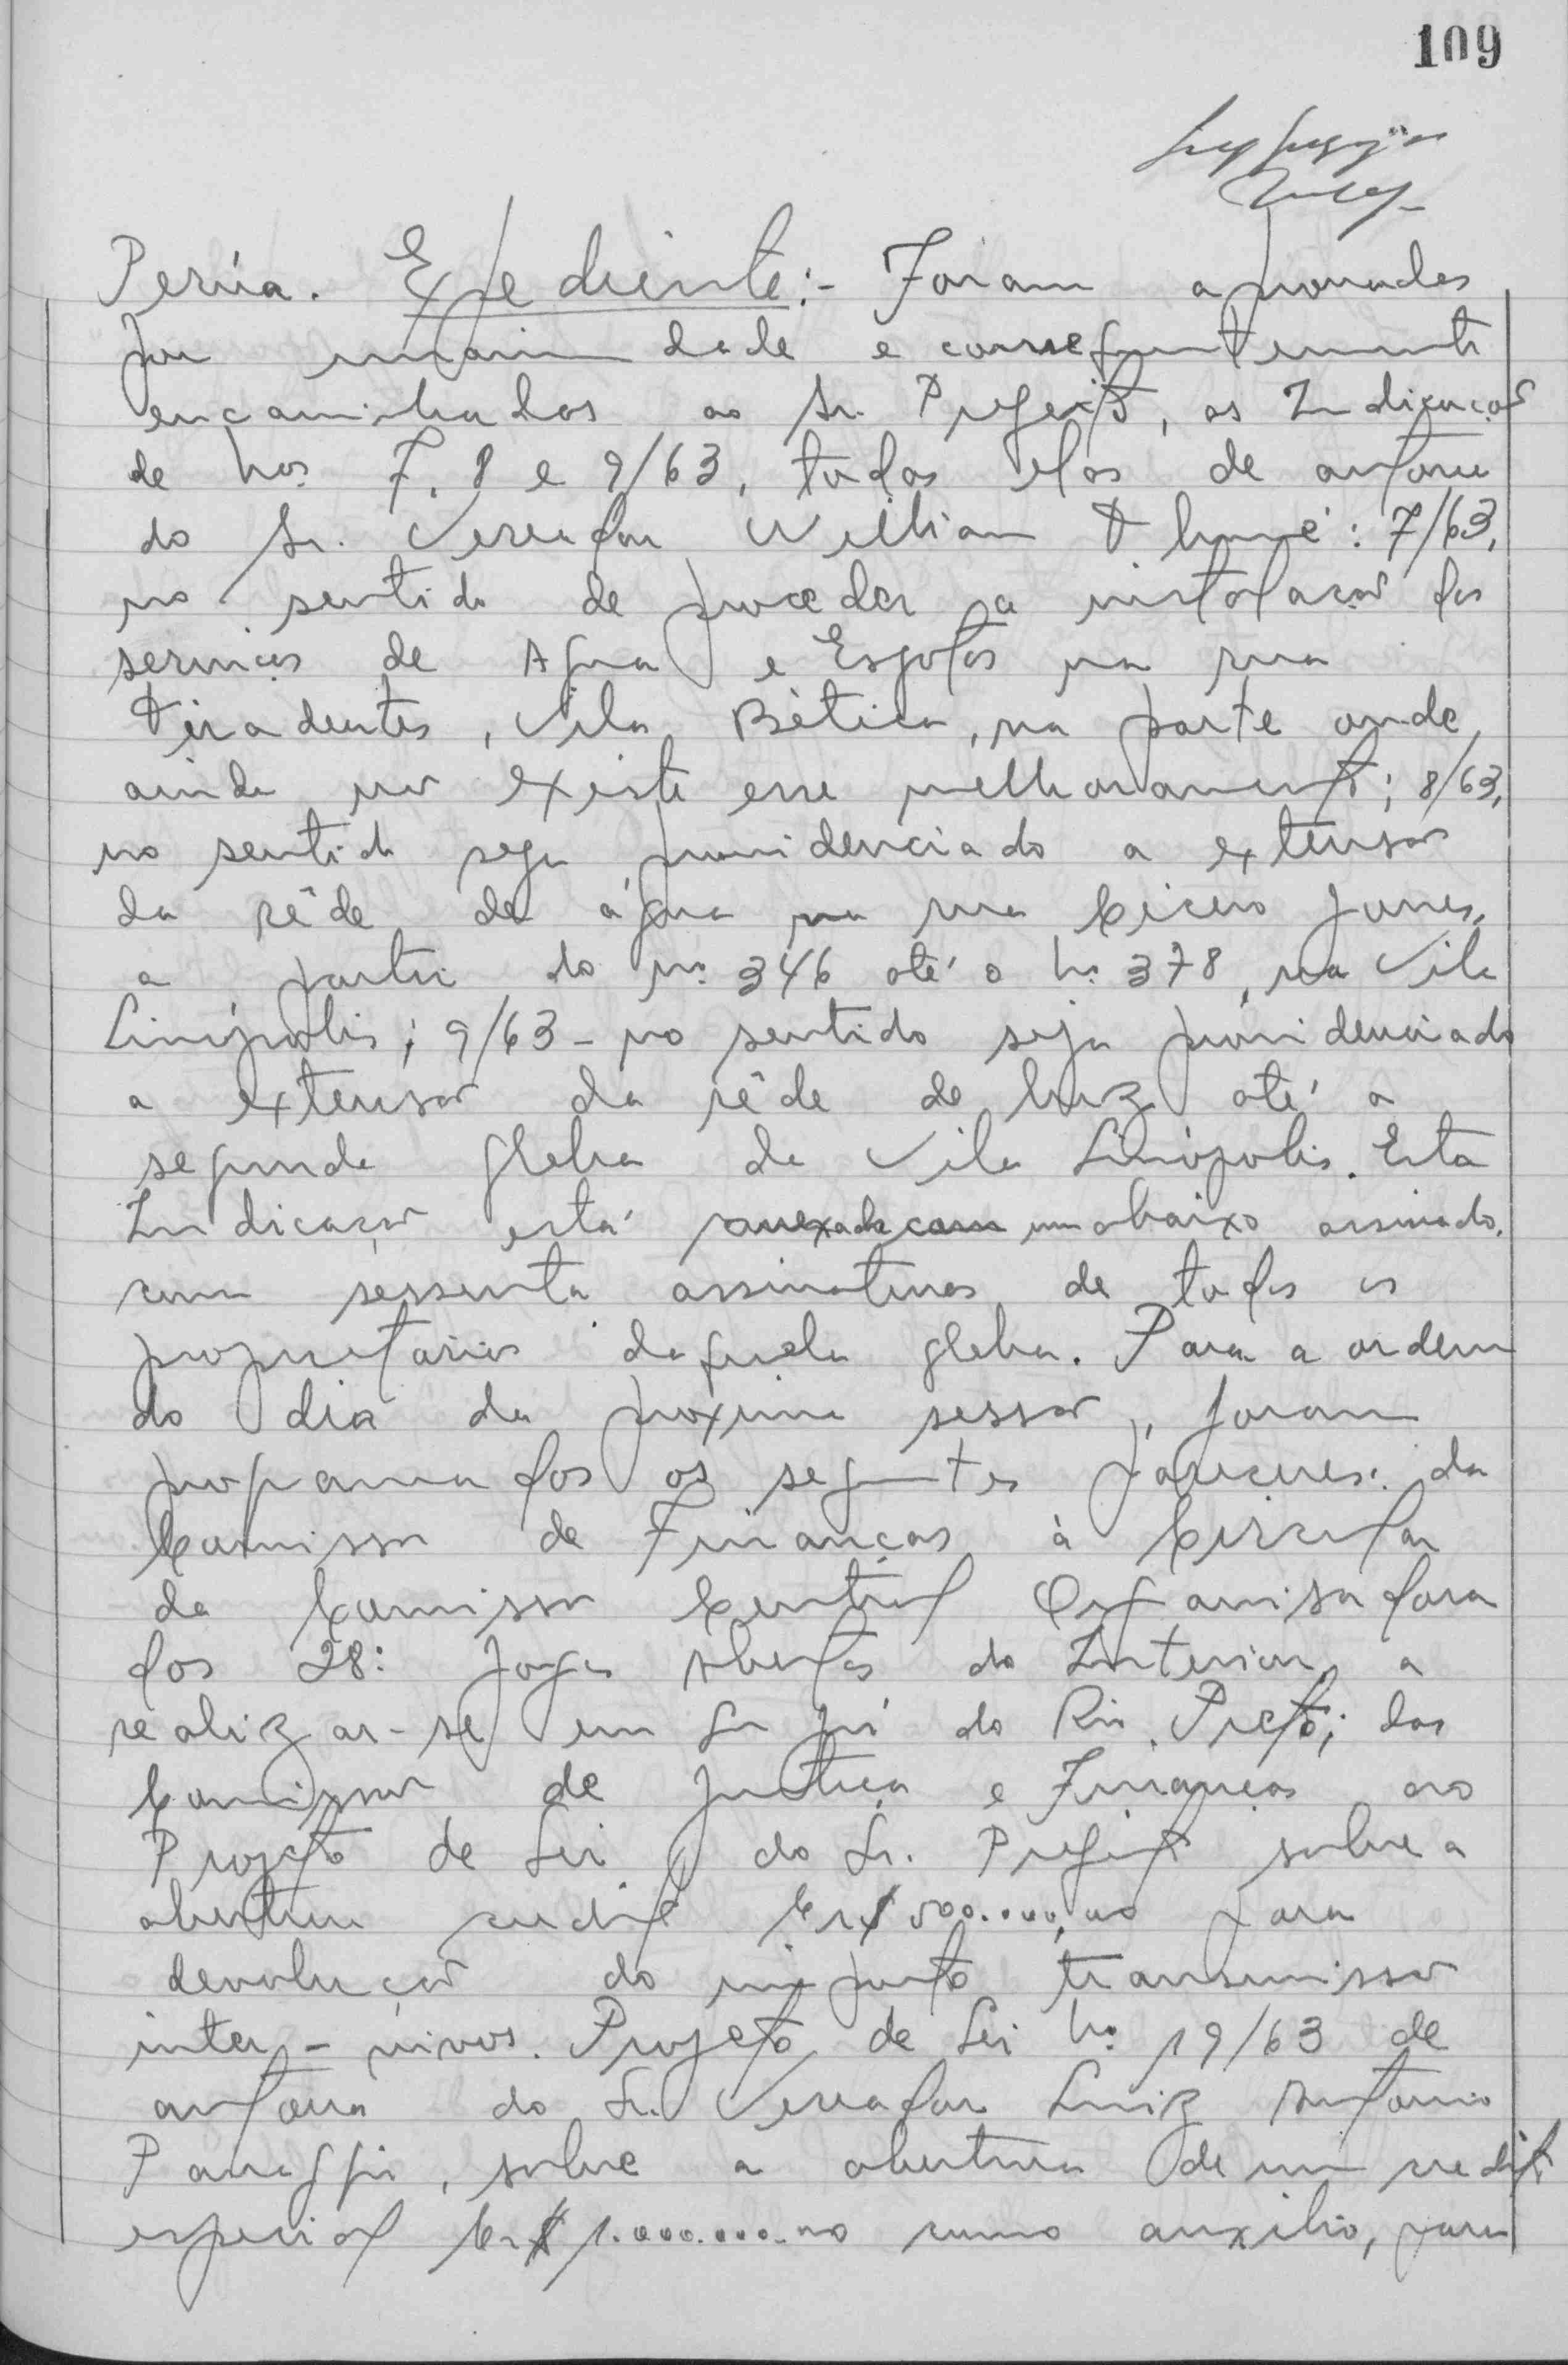 109
Perúa. Expediente:- Foram aprovadas
por unanimidade e consequentemente
encaminhadas ao Sr. Prefeito, as Indicações
de nos. 7, 8 e 9/63, todas elas de autoria
do Sr. Vereador William Thomé: 7/63,
no sentido de proceder a instalação dos
serviços de Agua e Esgotos na rua
Tiradentes, Vila Bética, na parte onde
ainda não existe esse melhoramento; 8/63,
no sentido seja providenciado a extensão
da rêde de água na rua Cicero Jones,
a partir do nº 346 até o nº 378, na Vila
Linópolis; 9/63 - no sentido seja providenciado
a extensão da rêde de luz até a
segunda gleba da Vila Linópolis. Esta
Indicação está anexada com um abaixo assinado,
com sessenta assinaturas de todos os
proprietarios daquela gleba. Para a ordem
do dia da proxima sessão, foram
programados os seguintes pareceres: da
Comissão de Finanças à Circular
da Comissão Central Organisadora
dos 28: Jogos Abertos do Interior, a
realizar-se em S. José do Rio Preto; das
Comissão de Justiça e Finanças ao
Projeto de Lei do Sr. Prefeito sobre a
abertura credito Cr$ 500.000,00 para
devolução do imposto transmissão
inter-vivos. Projeto de Lei nº 19/63 de
autoria do Sr. Vereador Luiz Antonio
Panaggio, sobre a abertura de um credito
especial Cr$ 1.000.000.00 como auxilio, para